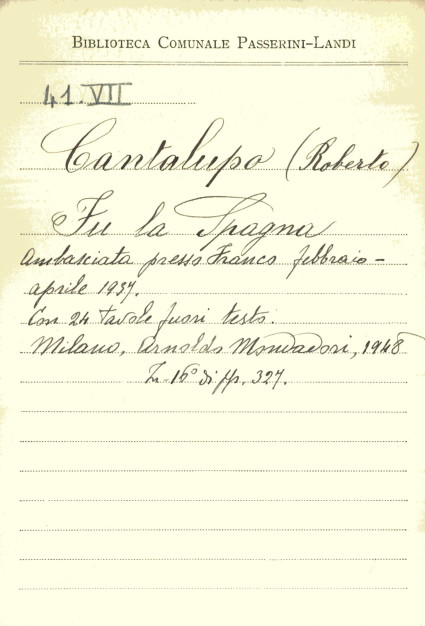 BIBLIOTECA COMUNALE PASSERINI-LANDI
41.VII
Cantalupo (Roberto)
Fu la Spagna
Ambasciata presso Franco febbraio -
aprile 1937.
Con 24 tavole fuori testo.
Milano, Arnoldo Mondadori, 1948
In-16° di pp. 327.